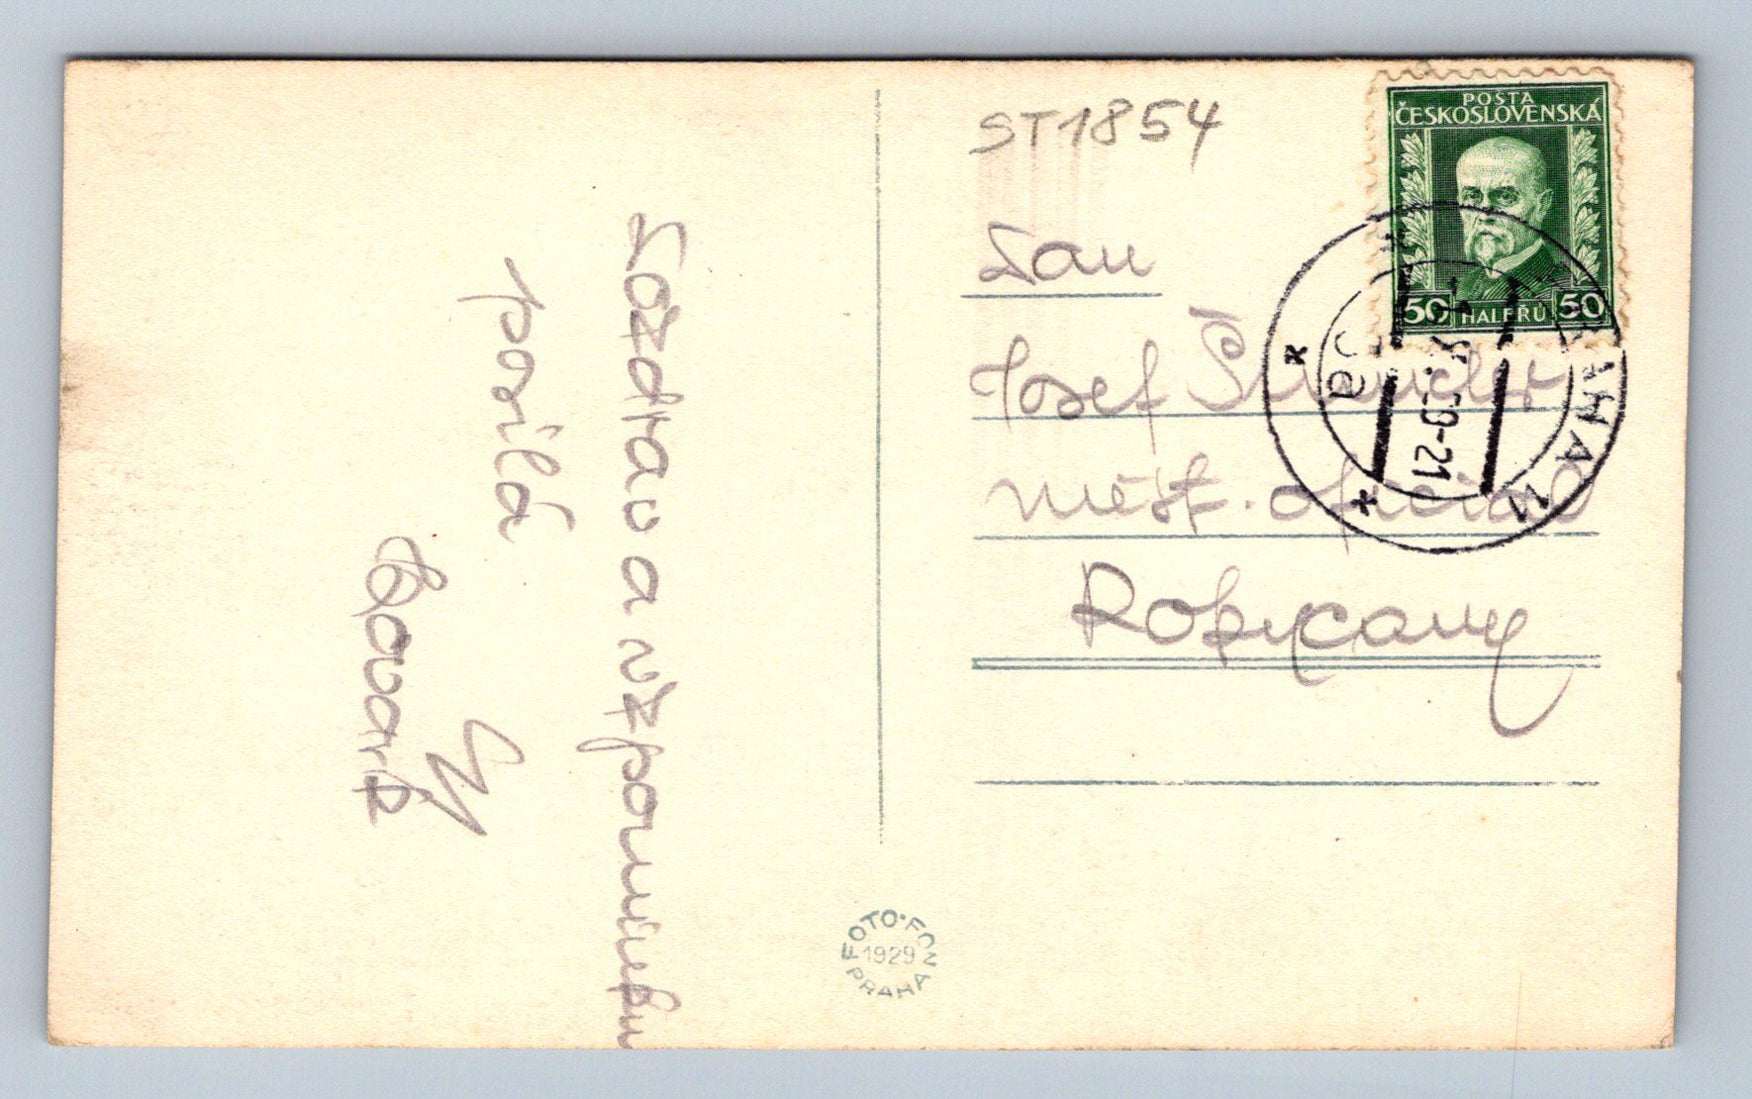 ST1854
POŠTA
ČESKOSLOVENSKÁ
50 HALÉŘŮ 50
PRAHA 11
29-21
6a
Pan
Josef
měst. oficiál
Rokycany
Pozdrav a vzpomínku
posílá
FOTO·FON
1929
PRAHA